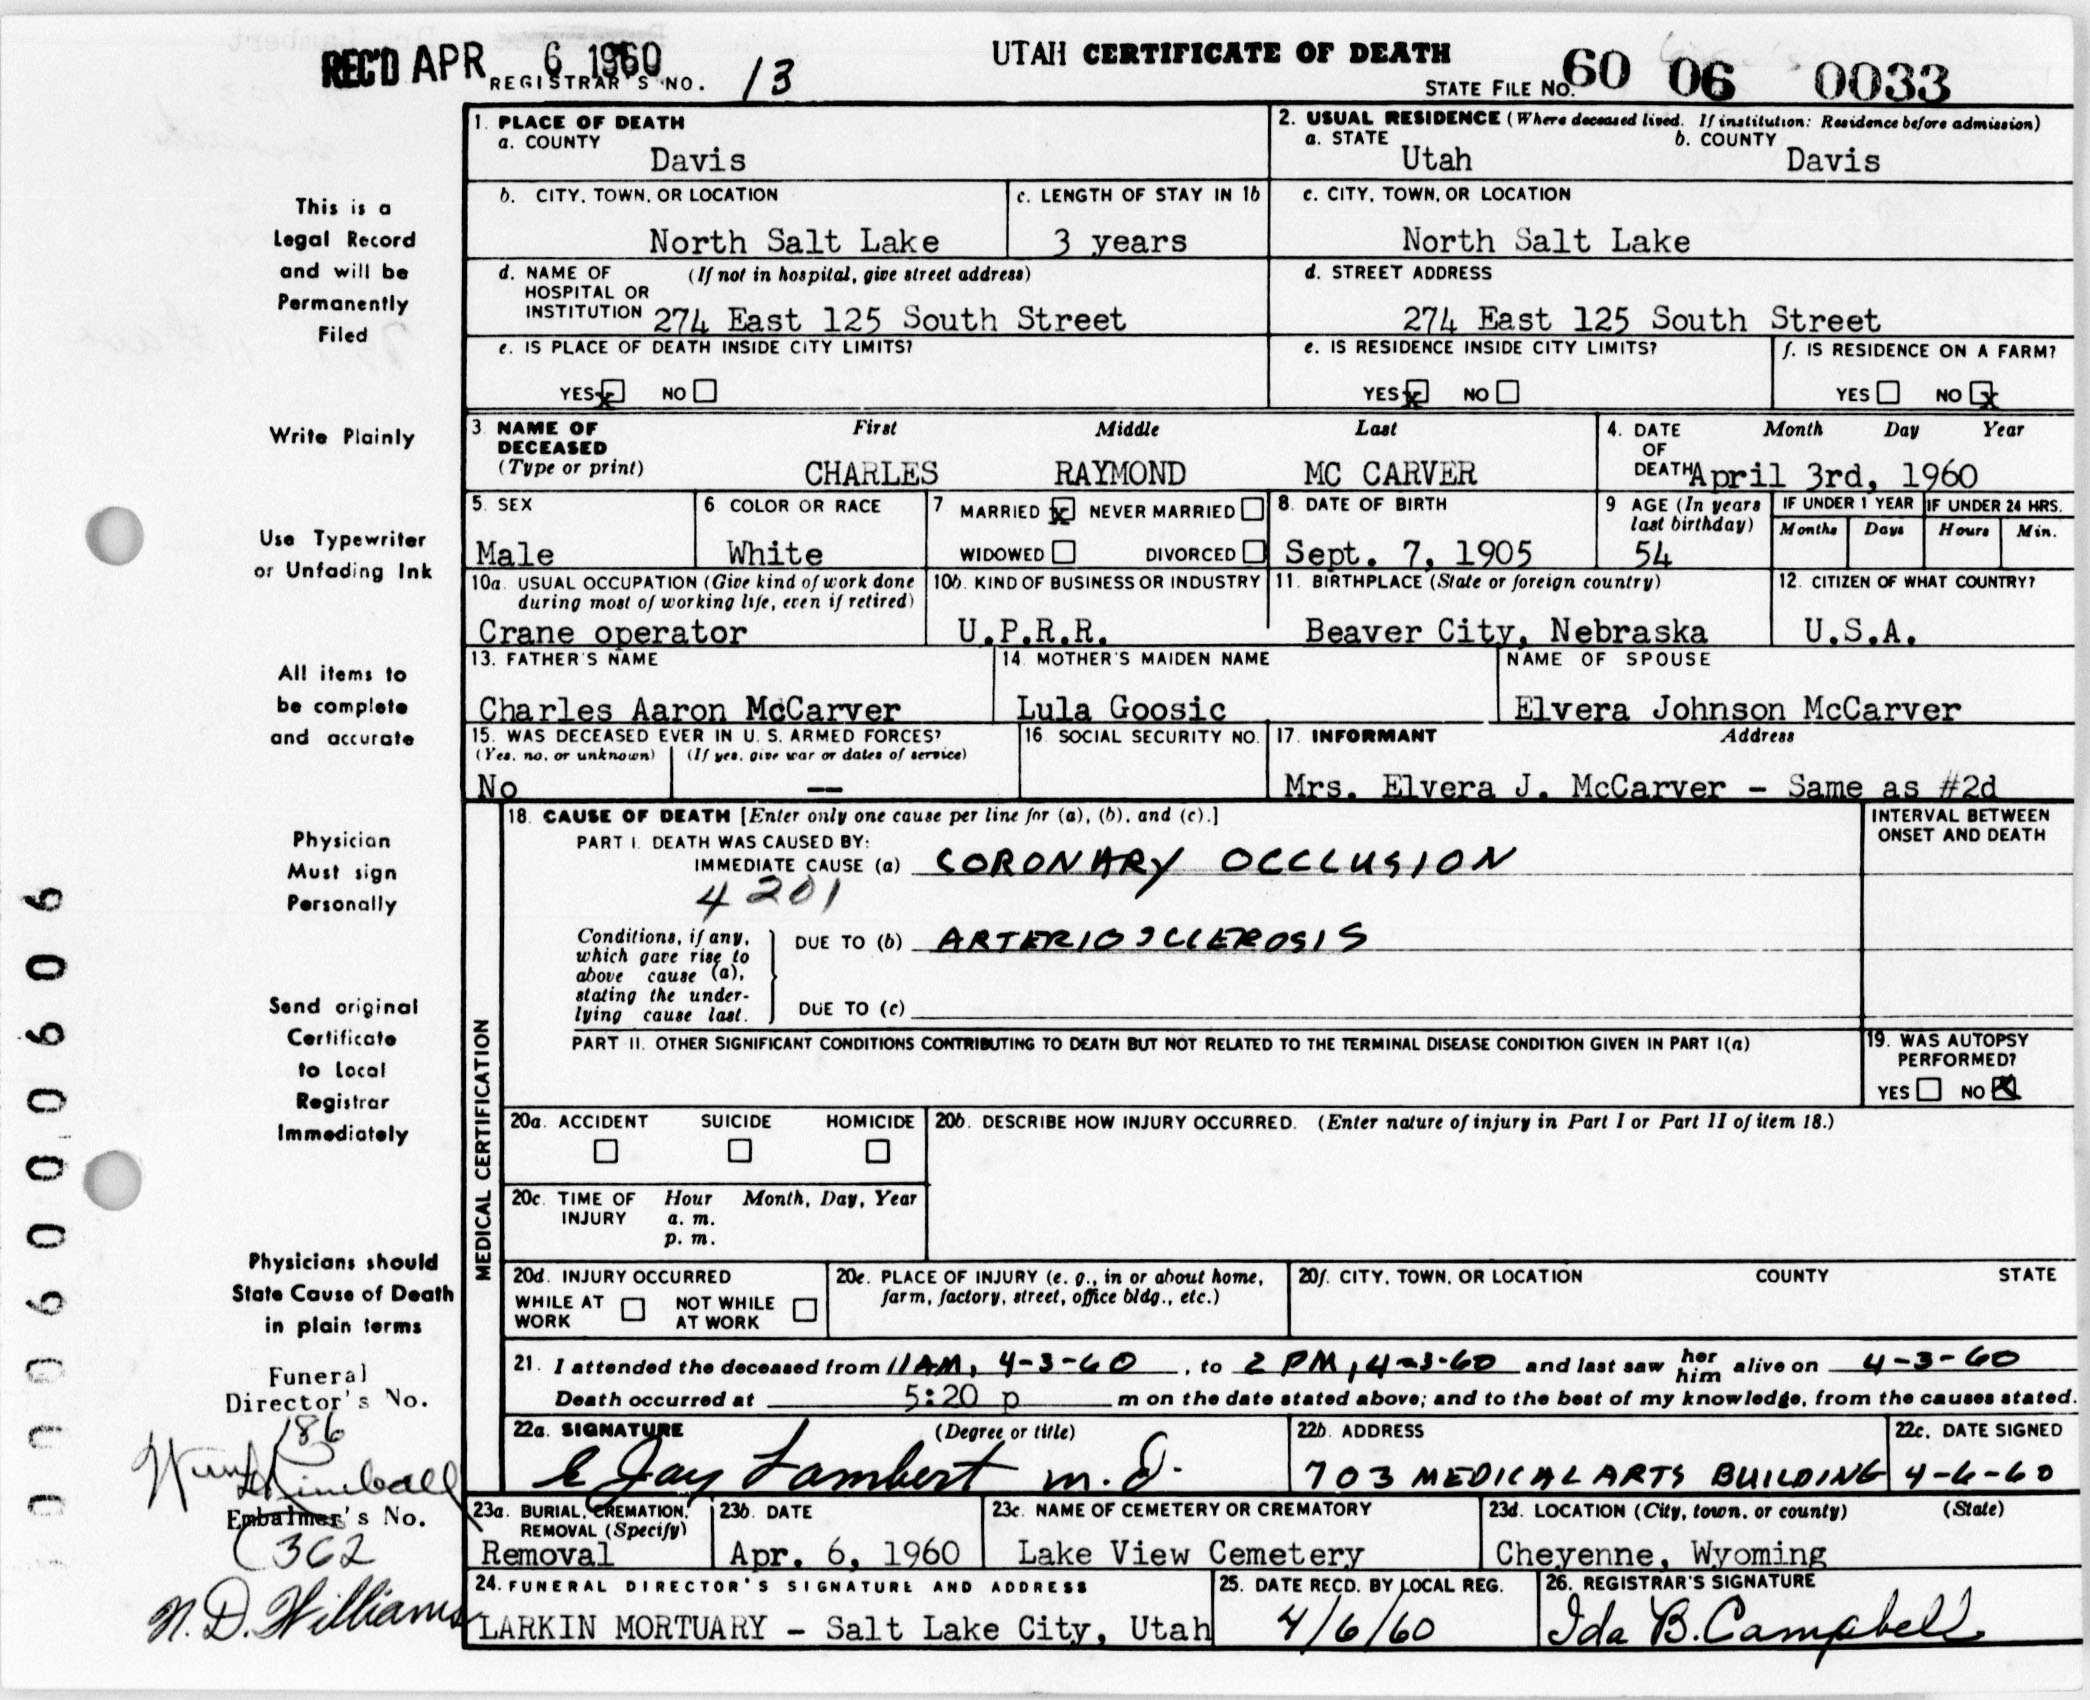 REC'D APR 6 1960
REGISTRAR'S NO. 13
UTAH CERTIFICATE OF DEATH
STATE FILE NO. 60 06 0033
This is a
Legal Record
and will be
Permanently
Filed
Write Plainly
Use Typewriter
or Unfading Ink
All items to
be complete
and accurate
Physician
Must sign
Personally
Send original
Certificate
to Local
Registrar
Immediately
Physicians should
State Cause of Death
in plain terms
Funeral
Director's No.
186
Kimball
Embalmer's No.
362
N. D. Williams
1. PLACE OF DEATH
a. COUNTY
Davis
2. USUAL RESIDENCE (Where deceased lived. If institution: Residence before admission)
a. STATE b. COUNTY
Utah Davis
b. CITY, TOWN, OR LOCATION
North Salt Lake
c. LENGTH OF STAY IN 1b
3 years
c. CITY, TOWN, OR LOCATION
North Salt Lake
d. NAME OF (If not in hospital, give street address)
HOSPITAL OR
INSTITUTION 274 East 125 South Street
d. STREET ADDRESS
274 East 125 South Street
e. IS PLACE OF DEATH INSIDE CITY LIMITS?
YES x NO
e. IS RESIDENCE INSIDE CITY LIMITS?
YES x NO
f. IS RESIDENCE ON A FARM?
YES NO x
3. NAME OF First Middle Last
DECEASED
(Type or print) CHARLES RAYMOND MC CARVER
4. DATE Month Day Year
OF
DEATH April 3rd, 1960
5. SEX
Male
6. COLOR OR RACE
White
7 MARRIED x NEVER MARRIED
WIDOWED DIVORCED
8. DATE OF BIRTH
Sept. 7, 1905
9 AGE (In years
last birthday)
54
IF UNDER 1 YEAR
Months Days
IF UNDER 24 HRS.
Hours Min.
10a. USUAL OCCUPATION (Give kind of work done
during most of working life, even if retired)
Crane operator
10b. KIND OF BUSINESS OR INDUSTRY
U.P.R.R.
11. BIRTHPLACE (State or foreign country)
Beaver City, Nebraska
12. CITIZEN OF WHAT COUNTRY?
U.S.A.
13. FATHER'S NAME
Charles Aaron McCarver
14. MOTHER'S MAIDEN NAME
Lula Goosic
NAME OF SPOUSE
Elvera Johnson McCarver
15. WAS DECEASED EVER IN U. S. ARMED FORCES?
(Yes, no, or unknown) (If yes, give war or dates of service)
No --
16. SOCIAL SECURITY NO.
17. INFORMANT Address
Mrs. Elvera J. McCarver - Same as #2d
MEDICAL CERTIFICATION
18. CAUSE OF DEATH [Enter only one cause per line for (a), (b), and (c).]
INTERVAL BETWEEN
ONSET AND DEATH
PART I. DEATH WAS CAUSED BY:
IMMEDIATE CAUSE (a) CORONARY OCCLUSION
4201
Conditions, if any,
which gave rise to
above cause (a),
stating the under-
lying cause last.
DUE TO (b) ARTERIOSCLEROSIS
DUE TO (c)
PART II. OTHER SIGNIFICANT CONDITIONS CONTRIBUTING TO DEATH BUT NOT RELATED TO THE TERMINAL DISEASE CONDITION GIVEN IN PART I(a)
19. WAS AUTOPSY
PERFORMED?
YES NO X
20a. ACCIDENT SUICIDE HOMICIDE
20b. DESCRIBE HOW INJURY OCCURRED. (Enter nature of injury in Part I or Part II of item 18.)
20c. TIME OF Hour Month, Day, Year
INJURY a. m.
p. m.
20d. INJURY OCCURRED
WHILE AT NOT WHILE
WORK AT WORK
20e. PLACE OF INJURY (e. g., in or about home,
farm, factory, street, office bldg., etc.)
20f. CITY, TOWN, OR LOCATION COUNTY STATE
21. I attended the deceased from 11 AM, 4-3-60, to 2 PM, 4-3-60 and last saw her him alive on 4-3-60
Death occurred at 5:20 p m on the date stated above; and to the best of my knowledge, from the causes stated.
22a. SIGNATURE (Degree or title)
E Jay Lambert M. D.
22b. ADDRESS
703 MEDICAL ARTS BUILDING
22c. DATE SIGNED
4-6-60
23a. BURIAL, CREMATION,
REMOVAL (Specify)
Removal
23b. DATE
Apr. 6, 1960
23c. NAME OF CEMETERY OR CREMATORY
Lake View Cemetery
23d. LOCATION (City, town, or county) (State)
Cheyenne, Wyoming
24. FUNERAL DIRECTOR'S SIGNATURE AND ADDRESS
LARKIN MORTUARY - Salt Lake City, Utah
25. DATE RECD. BY LOCAL REG.
4/6/60
26. REGISTRAR'S SIGNATURE
Ida B. Campbell